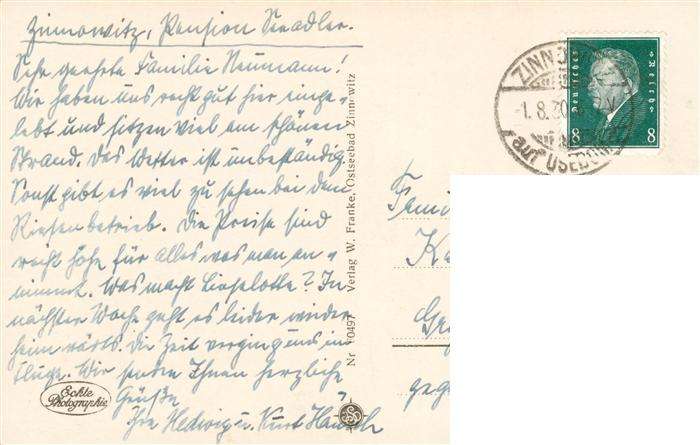 Zinnowitz, Pension Seeadler.
Sehr geehrte Familie Neumann!
Wir haben uns recht gut hier einge-
lebt und sitzen viel am schönen
Strand. Das Wetter ist unbeständig.
Sonst gibt es viel zu sehen bei dem
Riesenbetrieb. Die Preise sind
recht hohe für alles was man an-
nimmt. Was macht Lieselotte? In
nächster Woche geht es leider wieder
heimwärts. Die Zeit verging uns im
Fluge. Wir senden Ihnen herzliche
Grüße
Ihre Hedwig u. Kurt
Echte
Photographie
Nr 10497 Verlag W. Franke, Ostseebad Zinnowitz
ZINNO
-1.8.30
auf USEDOM
Deutsches Reich
8 8
Fami
Ka
geg